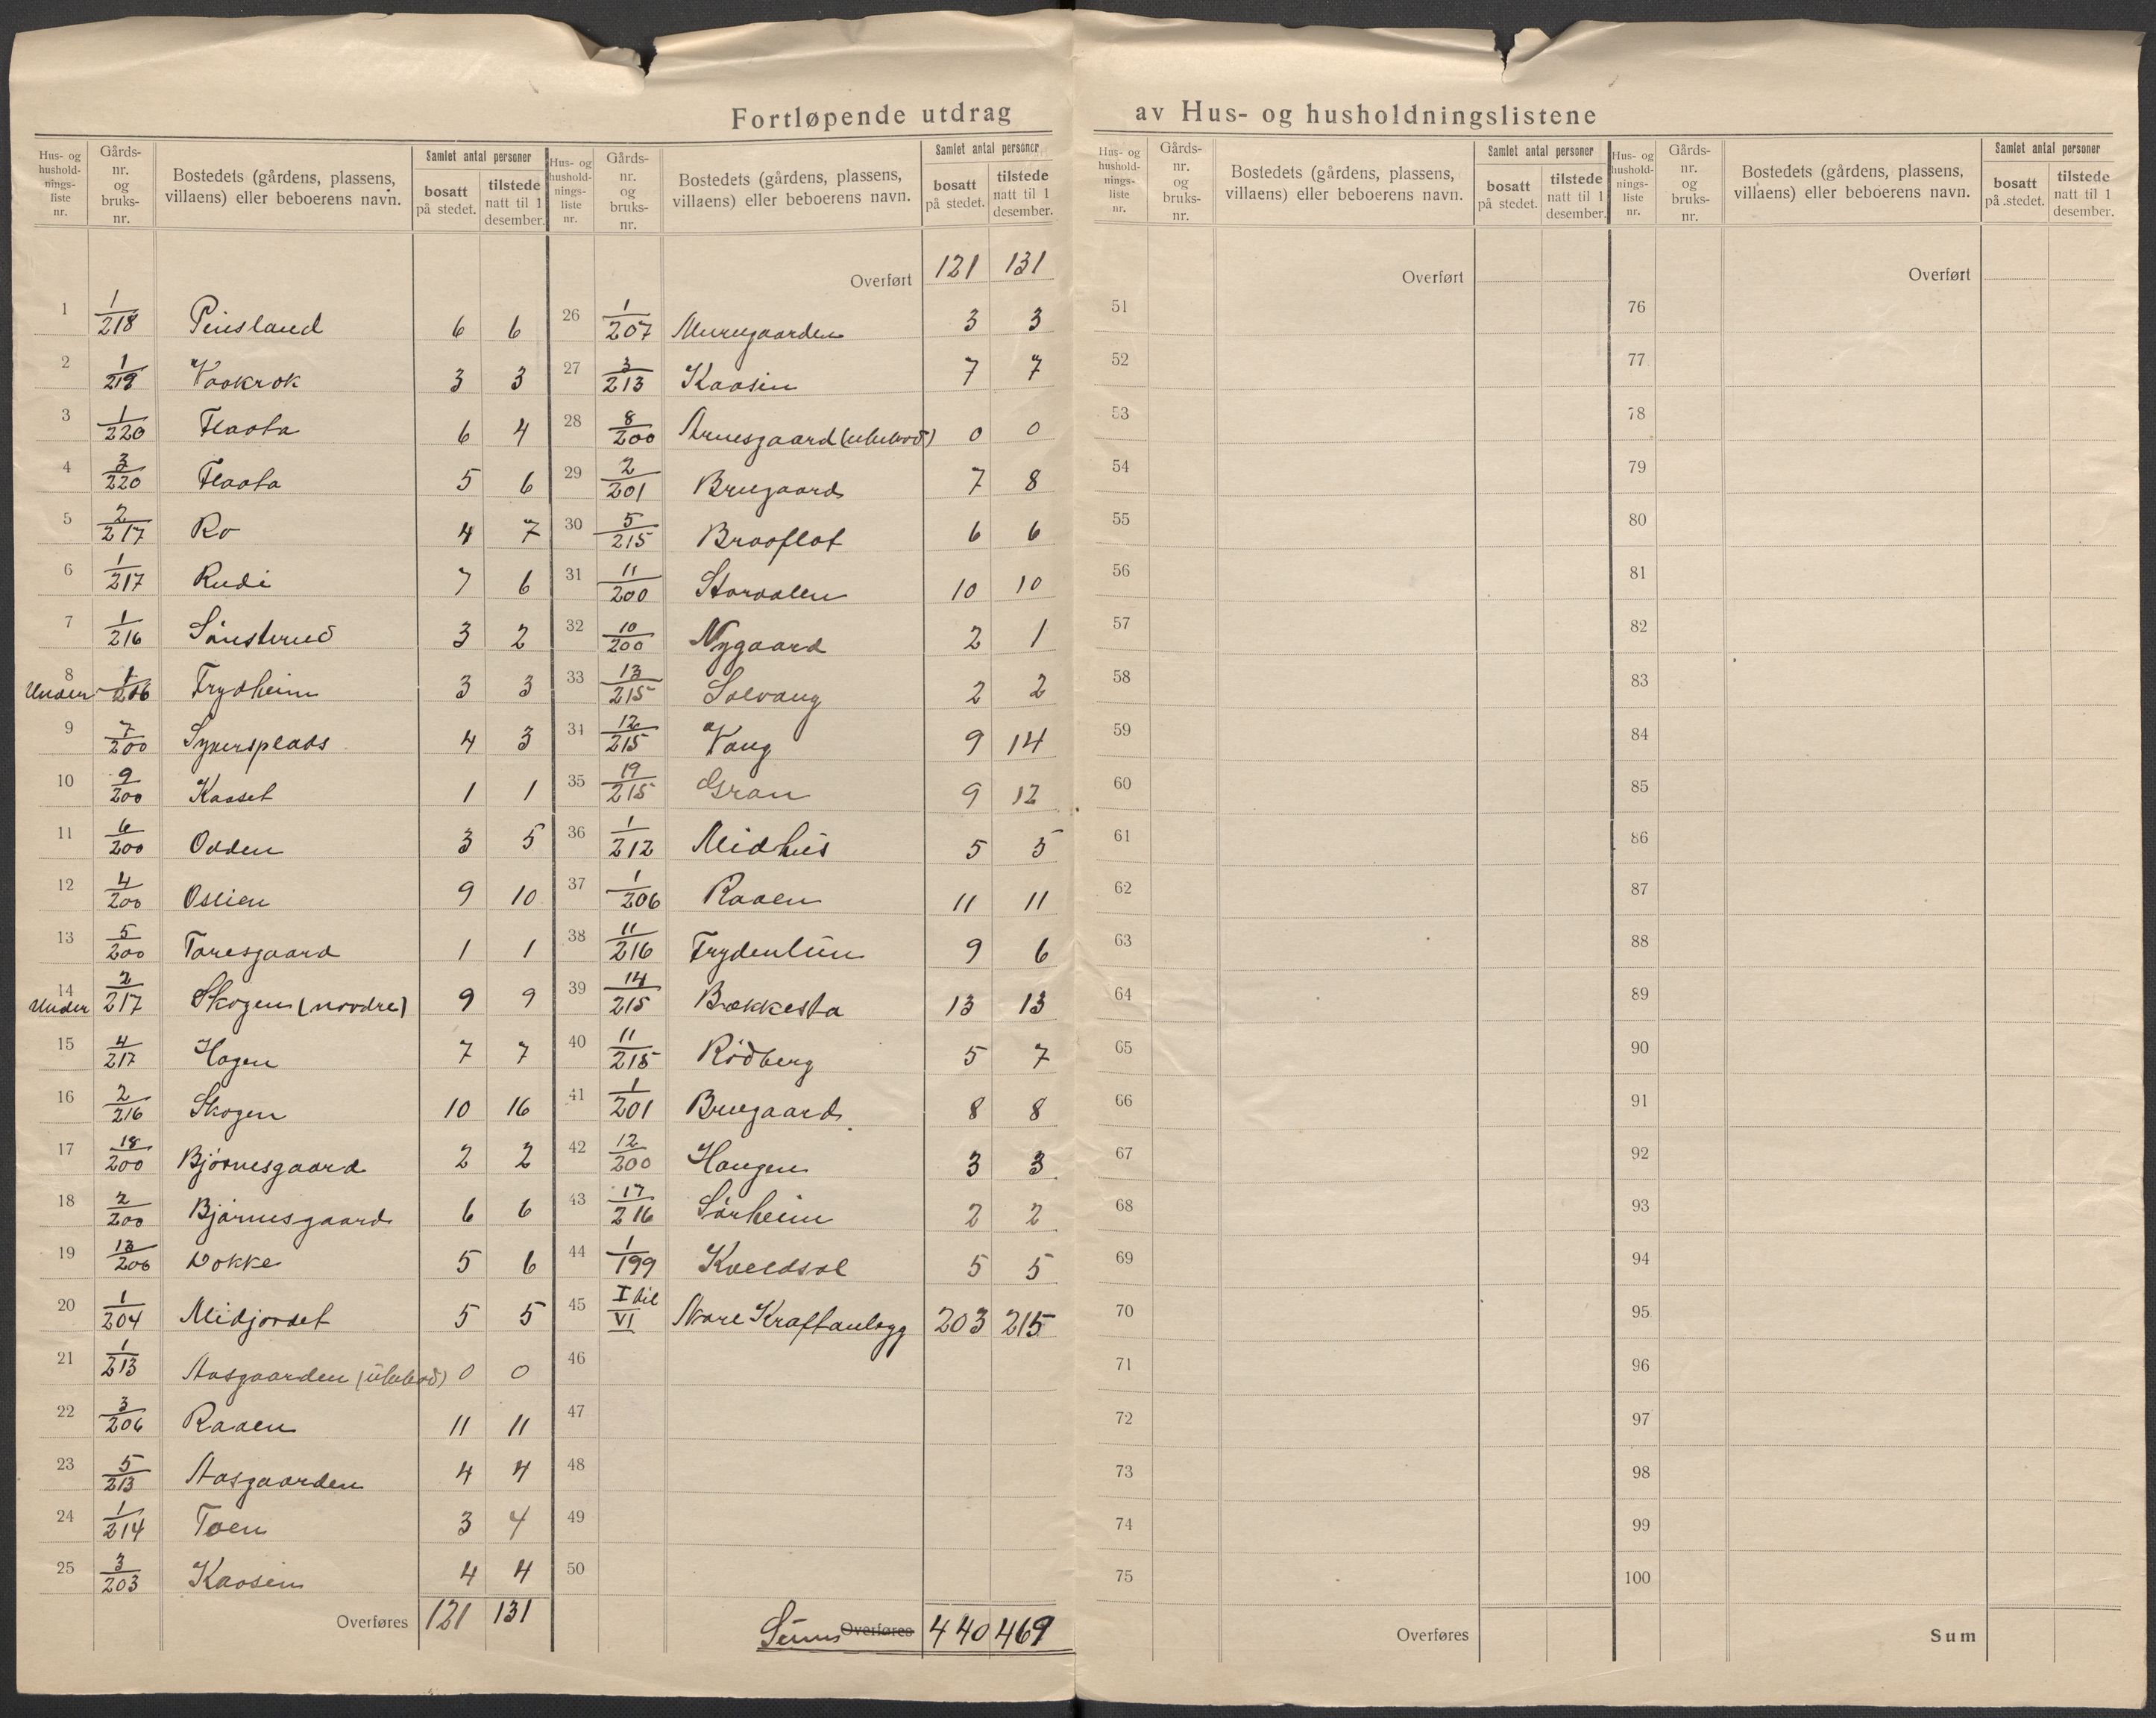 Fortløpende utdrag av Hus- og husholdningslistene
Hus- og hushold-nings-liste nr. Gårds-nr. og bruks-nr. Bostedets (gårdens, plassens, villaens) eller beboerens navn. Samlet antal personer bosatt på stedet. tilstede natt til 1 desember.
1 1/218 Peisland 6 6
2 1/219 Vaakrok 3 3
3 1/220 Flaata 6 4
4 3/220 Flaata 5 6
5 2/217 Ro 4 7
6 1/217 Rudi 7 6
7 1/216 Sönsterud 3 2
8 Under 1/206 Frydheim 3 3
9 7/200 4 3
10 9/200 Kaaset 1 1
11 6/200 Odden 3 5
12 4/200 Oslien 9 10
13 5/200 Toresgaard 1 1
14 Under 2/217 Skogen (nordre) 9 9
15 4/217 Hagen 7 7
16 2/216 Skogen 10 16
17 18/200 Bjørnesgaard 2 2
18 2/200 Bjørnesgaard 6 6
19 13/200 Dokke 5 6
20 1/204 Midjordet 5 5
21 1/213 Aasgaarden (ubebod) 0 0
22 3/206 Raaen 11 11
23 5/213 Aasgaarden 4 4
24 1/214 Toen 3 4
25 3/203 Kaasen 4 4
Overføres 121 131
Hus- og hushold-nings-liste nr. Gårds-nr. og bruks-nr. Bostedets (gårdens, plassens, villaens) eller beboerens navn. Samlet antal personer bosatt på stedet. tilstede natt til 1 desember.
Overført 121 131
26 1/207 Murugaarden 3 3
27 3/213 Kaasin 7 7
28 8/200 Arnesgaard (ubebod) 0 0
29 2/201 Brugaard 7 8
30 5/215 Braaflot 6 6
31 11/200 Storoalen 10 10
32 10/200 Nygaard 2 1
33 13/215 Solvang 2 2
34 12/215 Vang 9 14
35 19/215 Gran 9 12
36 1/212 Midhus 5 5
37 1/206 Raaen 11 11
38 11/216 Frydenlun 9 6
39 14/215 Bakkesta 13 13
40 11/215 Rödberg 5 7
41 1/201 Brugaard 8 8
42 12/200 Haugen 3 3
43 17/216 Sörheim 2 2
44 1/199 Kveldsol 5 5
45 I til VI Nore Kraftanlegg 203 215
46
47
48
49
50
Sum Overføres 440 469
Hus- og hushold-nings-liste nr. Gårds-nr. og bruks-nr. Bostedets (gårdens, plassens, villaens) eller beboerens navn. Samlet antal personer bosatt på stedet. tilstede natt til 1 desember.
Overført
51
52
53
54
55
56
57
58
59
60
61
62
63
64
65
66
67
68
69
70
71
72
73
74
75
Overføres
Hus- og hushold-nings-liste nr. Gårds-nr. og bruks-nr. Bostedets (gårdens, plassens, villaens) eller beboerens navn. Samlet antal personer bosatt på stedet. tilstede natt til 1 desember.
Overført
76
77
78
79
80
81
82
83
84
85
86
87
88
89
90
91
92
93
94
95
96
97
98
99
100
Sum